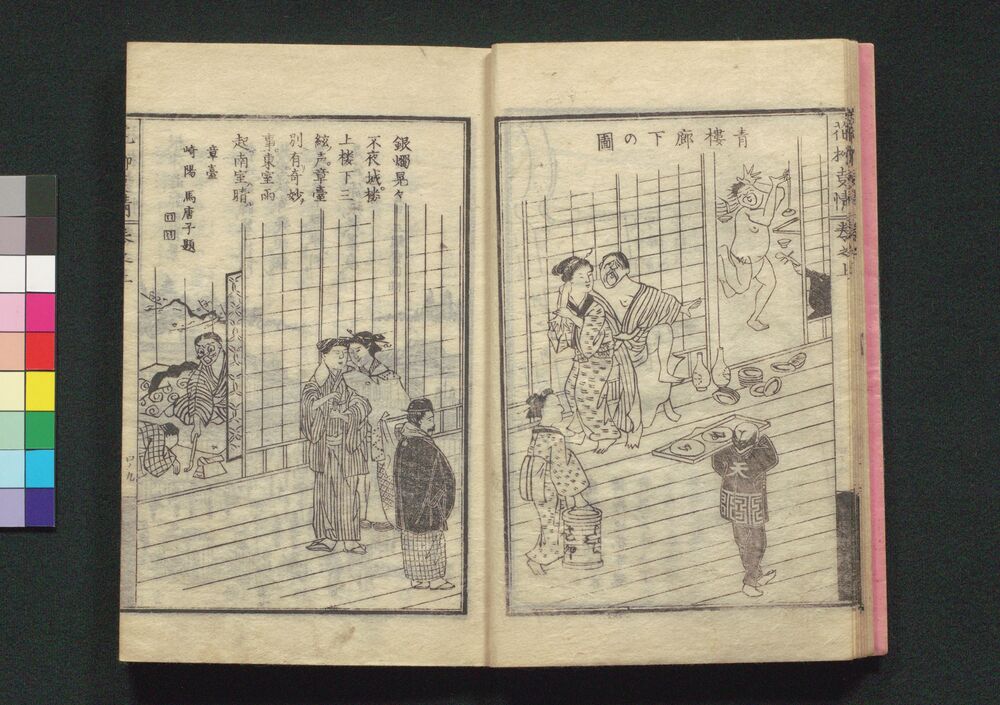 青樓廊下の圖
花柳
情
卷之上
天
銀燭晃々
不夜城楼
上楼下三
絃声章臺
別有奇妙
事東室雨
起南室晴
章臺
崎陽 馬唐子題